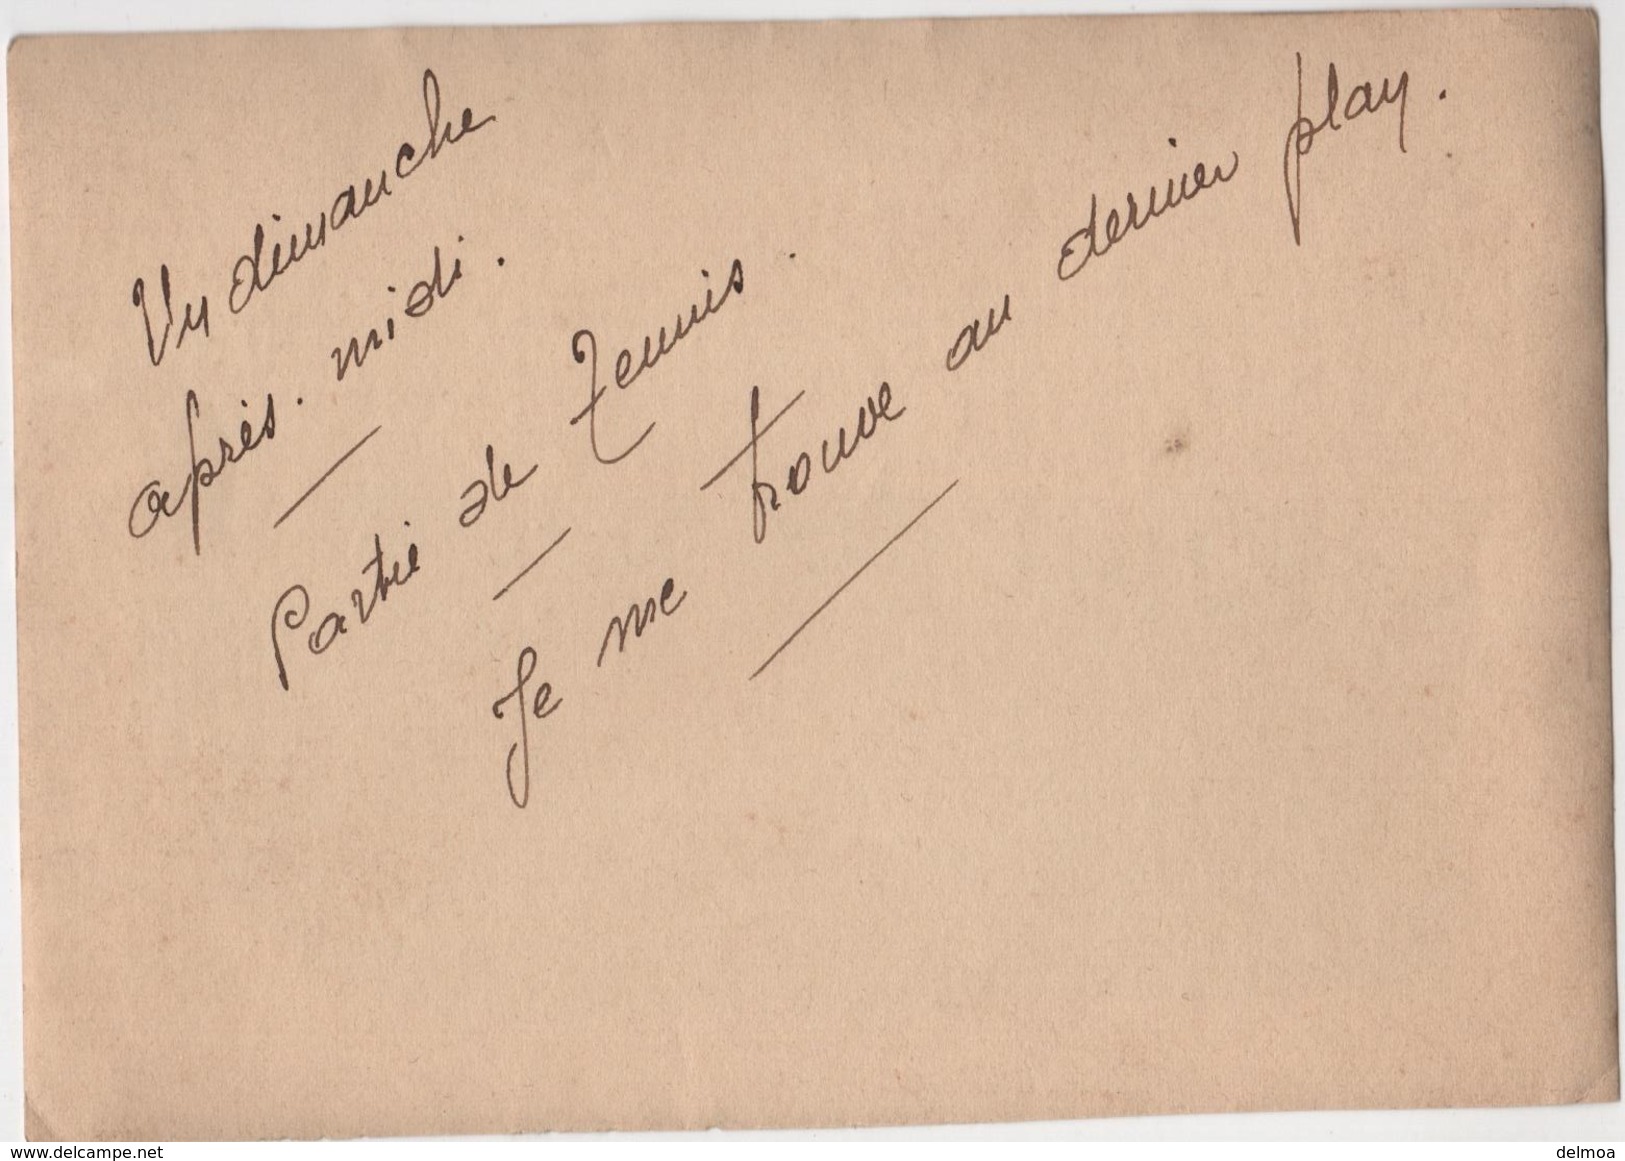 Un dimanche
après. midi.
Partie de Tennis.
Je me trouve au dernier play.
www.delcampe.net
delmoa